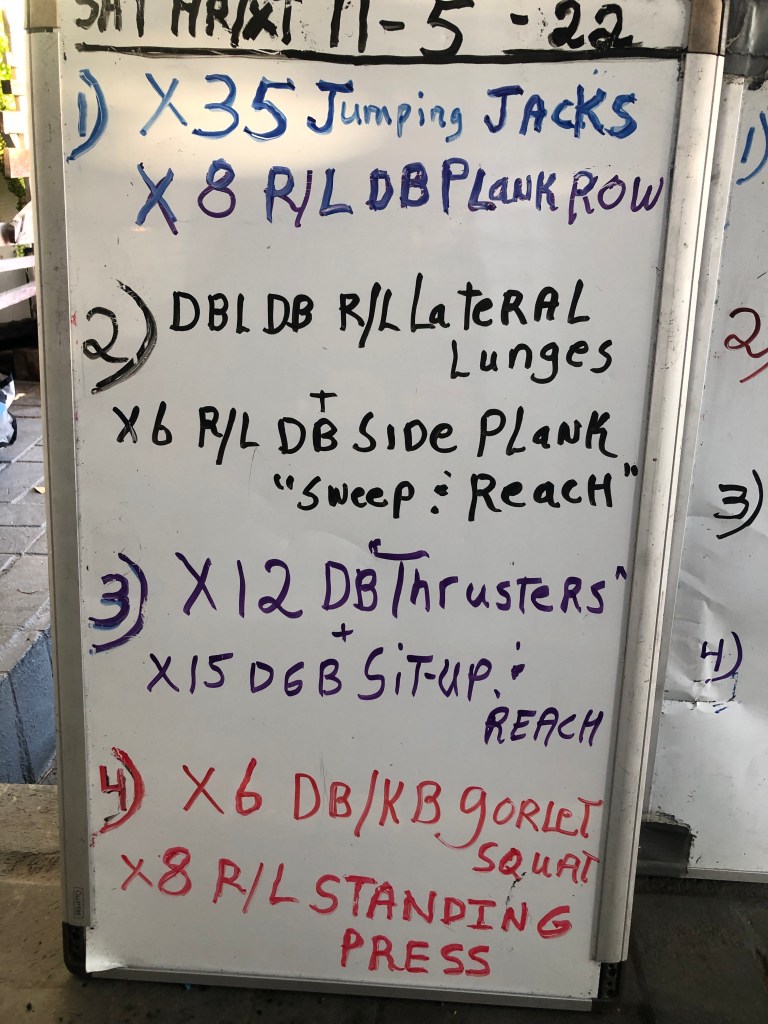 SAT HR/XT 11-5-22
1) X35 Jumping JACKS
X 8 R/L DB PLANK ROW
2) DBL DB R/L LateRAL
Lunges
+
X6 R/L DB SIDe PLANK
"Sweep & ReacH"
3) X12 DB "ThrusTeRS"
+
X15 DGB SiT-UP &
REACH
4) X6 DB/KB gORLeT
SQUAT
X8 R/L STANDING
PRESS
1)
2)
3)
4)